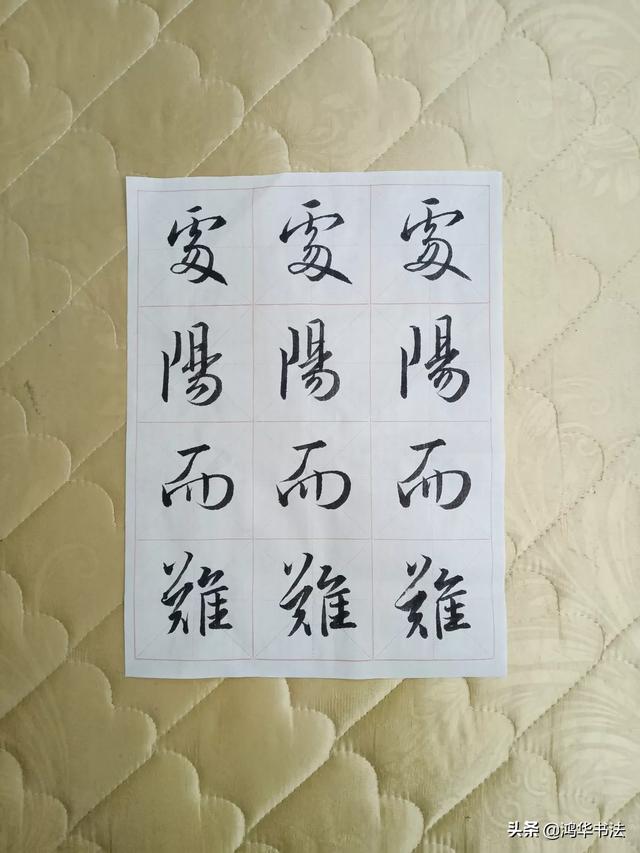 處處處
陽陽陽
而而而
難難難
头条 @鸿华书法